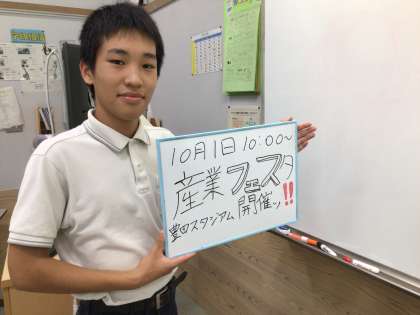 10月1日 10:00~
産業フェスタ
豊田スタジアム 開催ッ!!